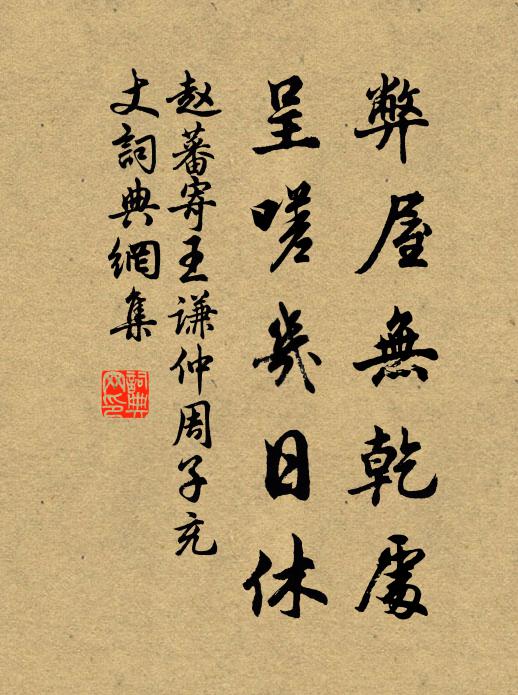 弊屋無乾處
呈嗟幾日休
赵蕃寄王谦仲周子充
丈詞典網集
詞典網印